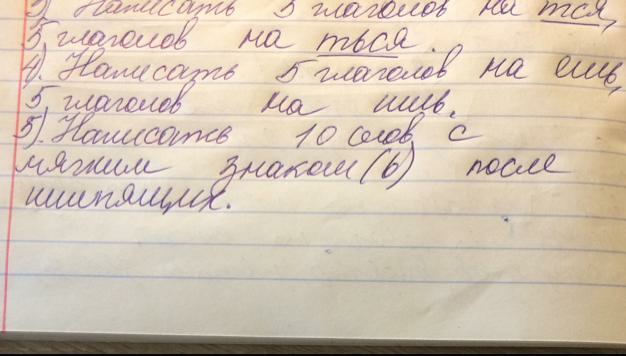 3) Написать 5 глаголов на тся,
5 глаголов на ться.
4). Написать 5 глаголов на ешь,
5 глаголов на ишь.
5). Написать 10 слов с
мягким знаком (ь) после
шипящих.